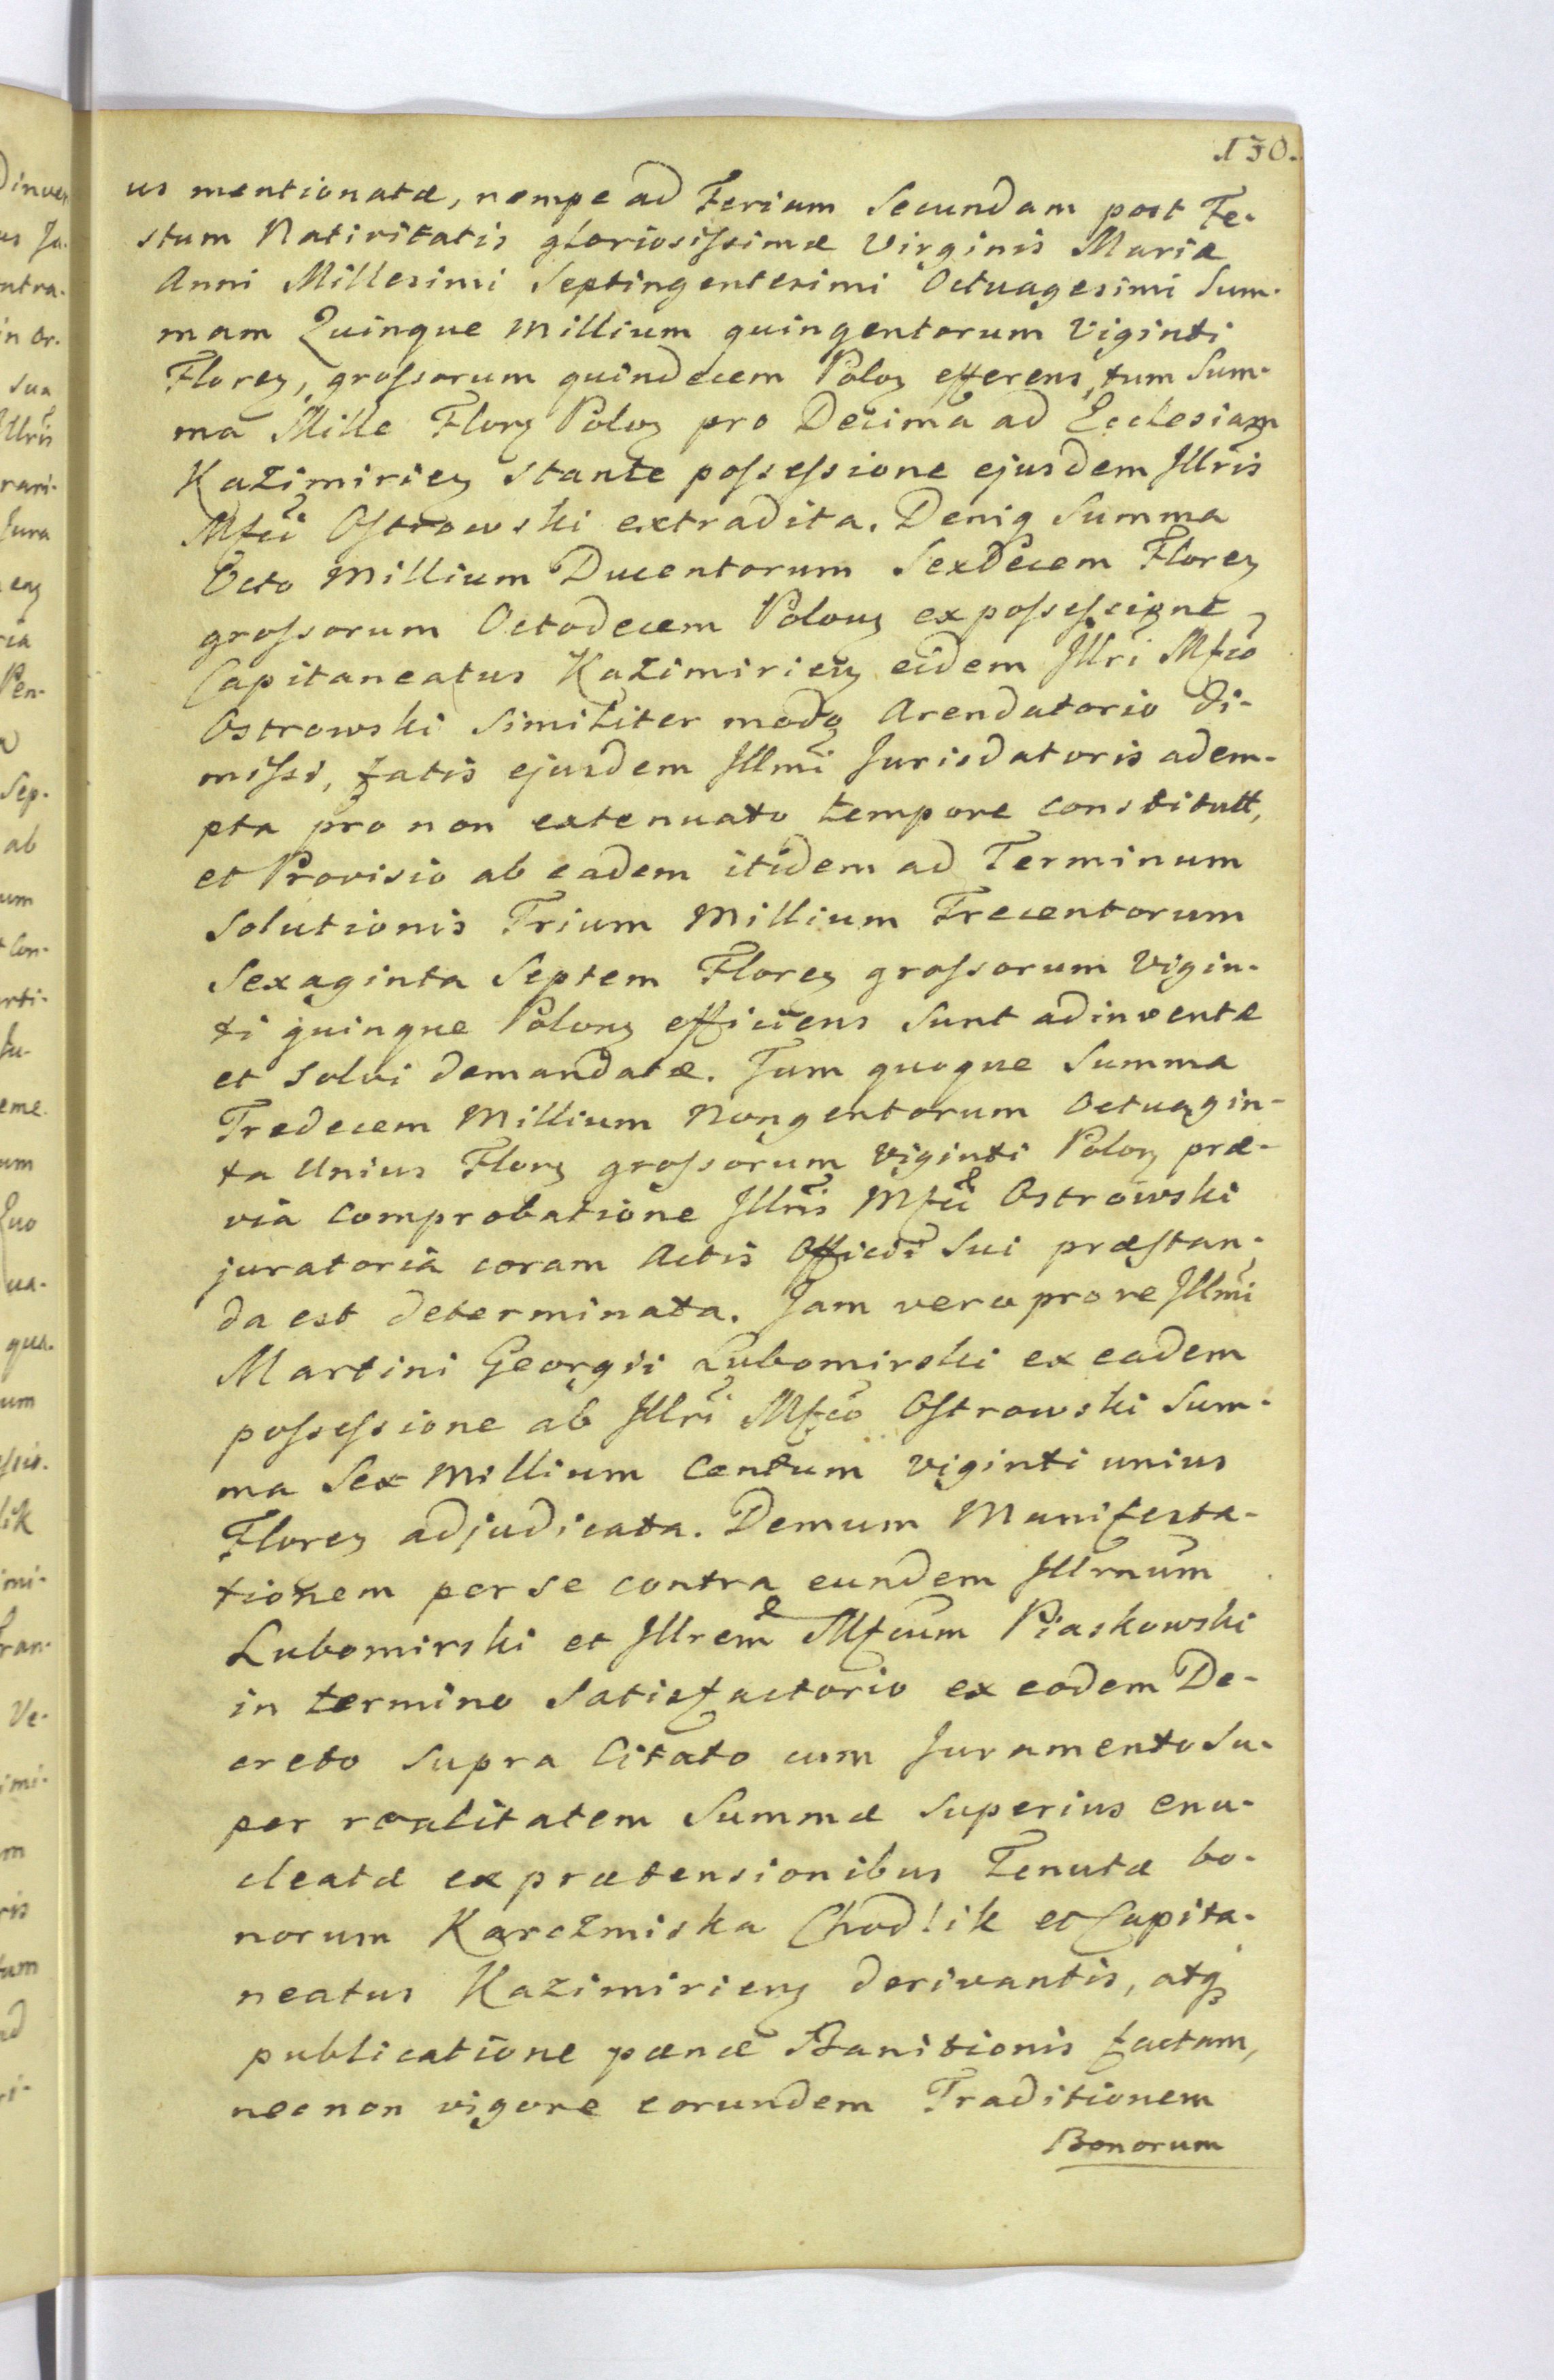 130.
us mentionatæ, nempe ad Feriam Secundam post Fe-
stum Nativitatis gloriosissimæ Virginis Mariæ
Anni Millesimi Septingentesimi Octuagesimi Sum-
mam Quinque Millium quingentorum Viginti
Floreꝫ, grossorum quindecem Poloꝫ efferens, tum Sum-
ma Mille Florꝫ Poloꝫ pro Decima ad Ecclesiam
Kazimirieꝫ stante possessione ejusdem Illris
Mfci Ostrowski extradita. Deniq Summa
Octo Millium Ducentorum SexDecem Floreꝫ
grossorum Octodecem Polonꝫ ex possessione
Capitaneatus Kazimirienꝫ eidem Illri Mfco
Ostrowski Similiter modo Arendatorio di-
missi, fatis ejusdem Illmi Jurisdatoris adem-
pta pro non extenuato tempore constitutt,
et Provisio ab eadem itidem ad Terminum
Solutionis Trium Millium Trecentorum
Sexaginta Septem Floreꝫ grossorum Vigin-
ti quinque Polonꝫ efficiens sunt adinventæ
et solvi demandatæ. Tum quoque Summa
Tredecem Millium Nongentorum Octuagin-
ta Unius Florꝫ grossorum Viginti Poloꝫ præ-
via comprobatione Illris Mfci Ostrowski
juratoria coram Actis Officii Sui præstan-
da est determinata. Jam vero pro re Illmi
Martini Georgii Lubomirski ex eadem
possessione ab Illri Mfco Ostrowski Sum-
ma Sex Millium Centum viginti unius
Floreꝫ adjudicata. Demum Manifesta-
tionem per se contra eundem Illmum
Lubomirski et Illrem Mfcum Piaskowski
in termino satisfactorio ex eodem De-
creto supra Citato cum Juramento su-
per realitatem Summæ superius enu-
cleatæ ex prætensionibus Tenutæ bo-
norum Karczmiska Chodlik et Capita-
neatus Kazimirienꝫ derivantis, atqꝫ
publicatione pænæ Banitionis factam,
nec non vigore eorundem Traditionem
Bonorum